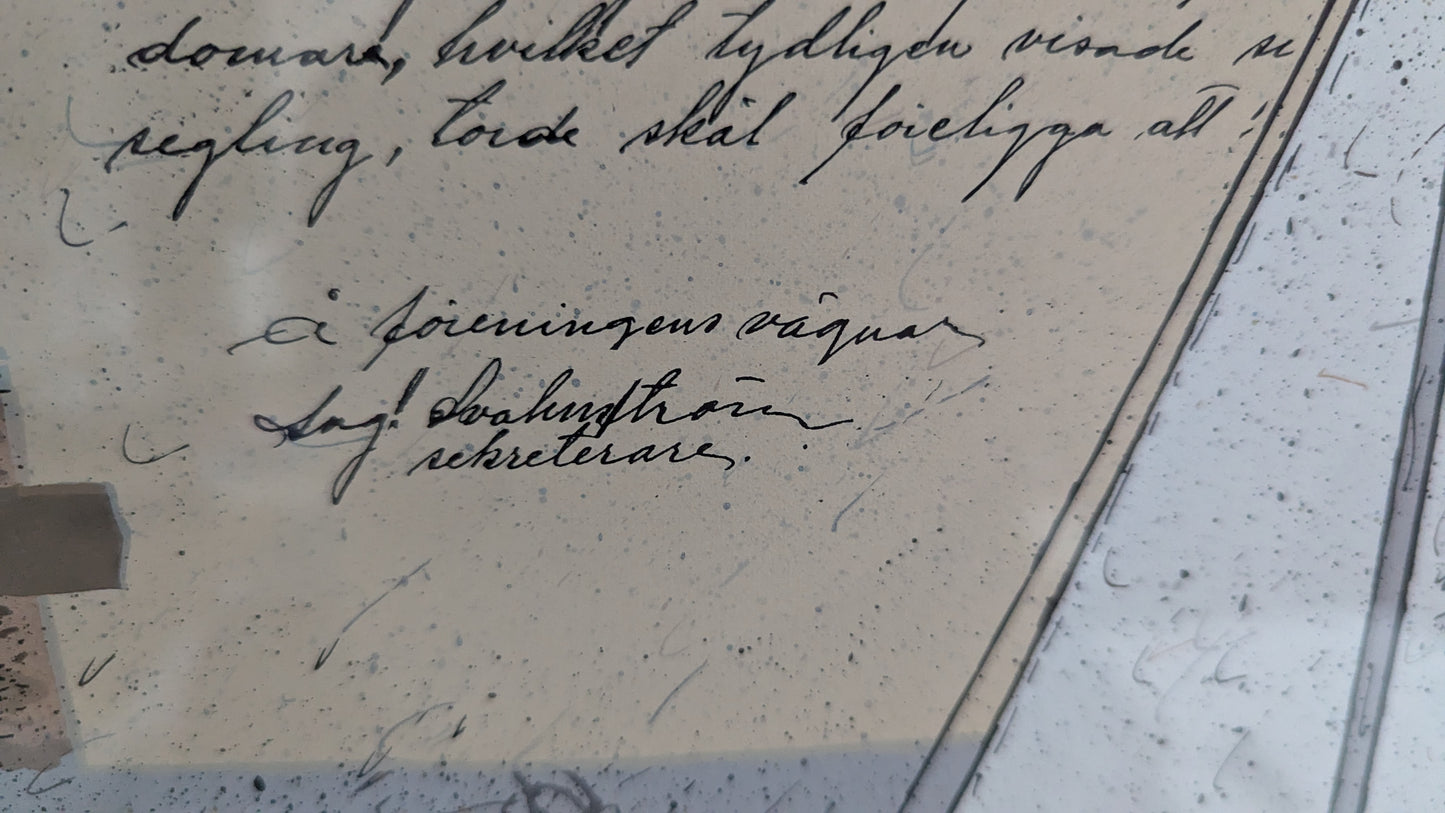 domare, hvilket tydligen visade se
segling, torde skäl föreligga att
å föreningens vägnar
Svahnström
sekreterare.